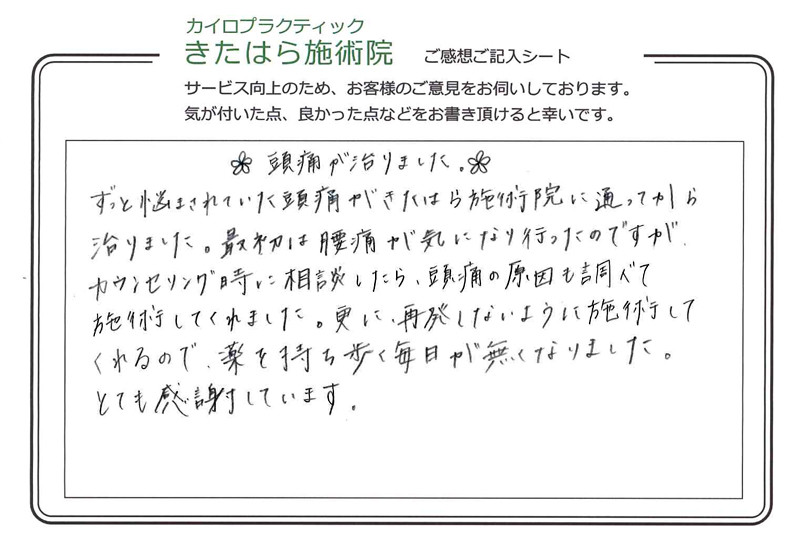 カイロプラクティック
きたはら施術院 ご感想ご記入シート
サービス向上のため、お客様のご意見をお伺いしております。
気が付いた点、良かった点などをお書き頂けると幸いです。
頭痛が治りました。
ずっと悩まされていた頭痛がきたはら施術院に通ってから
治りました。最初は腰痛が気になり行ったのですが、
カウンセリング時に相談したら、頭痛の原因も調べて
施術してくれました。更に、再発しないように施術して
くれるので、薬を持ち歩く毎日が無くなりました。
とても感謝しています。